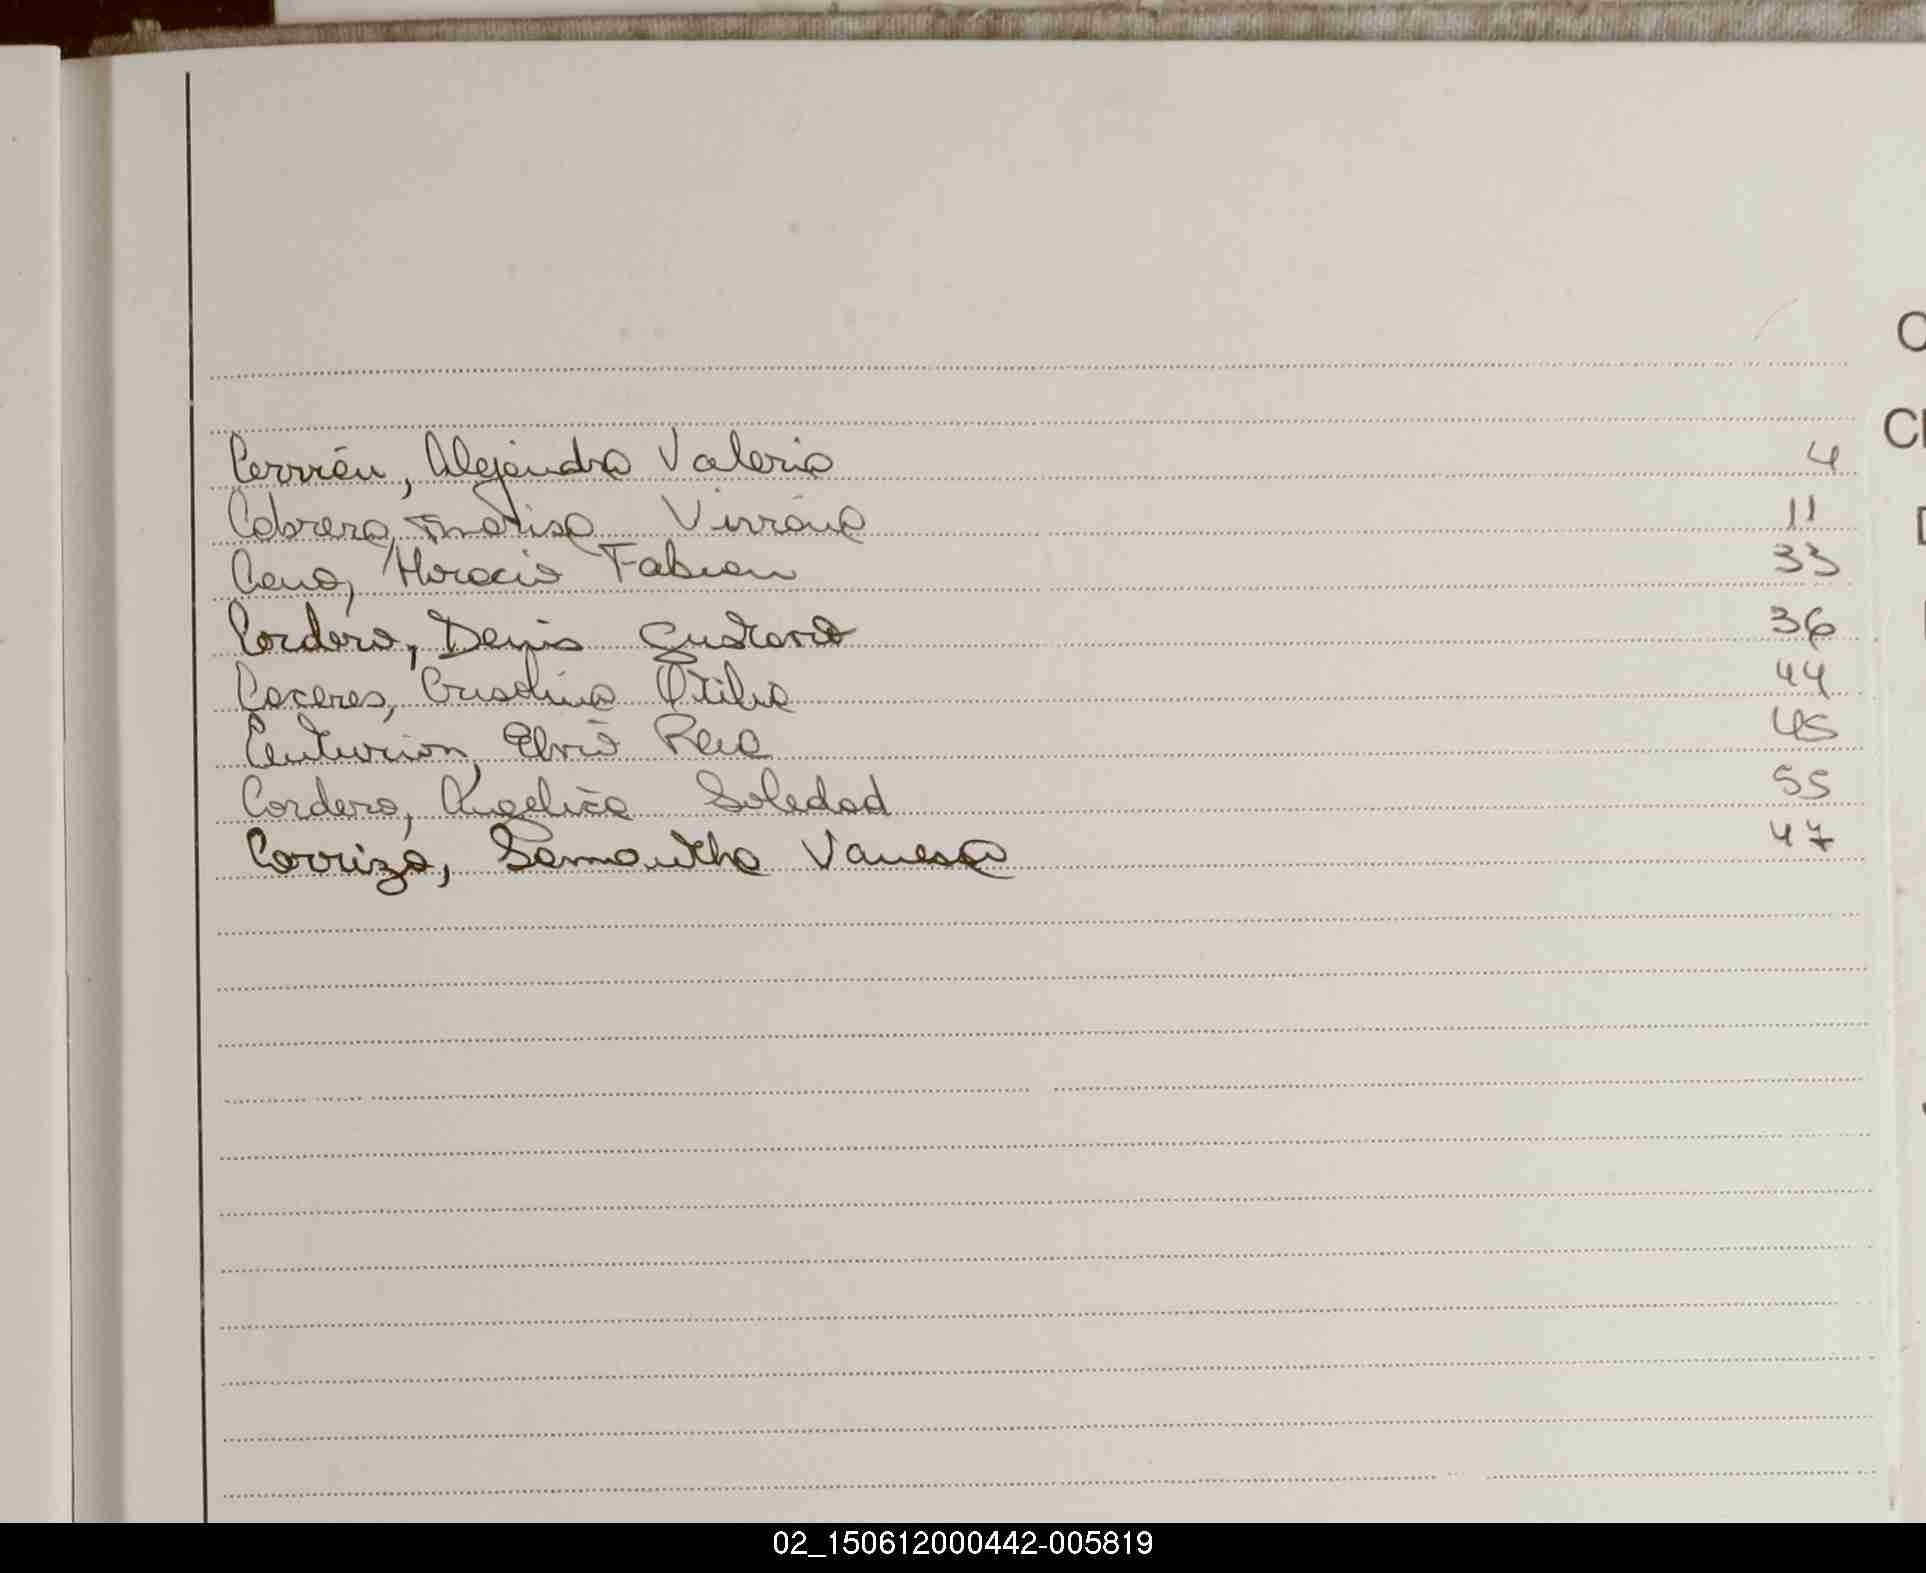 Carrión, Alejandra Valeria 4
Cabrera, Marisa Viviana 11
Cano, Horacio Fabian 33
Cordero, Denis Gustavo 36
Caceres, Cristina Otilia 44
Centurion, Elvio Rene 45
Cordero, Angelica Soledad 55
Carrizo, Samantha Vanesa 47
C
D
02_150612000442-005819